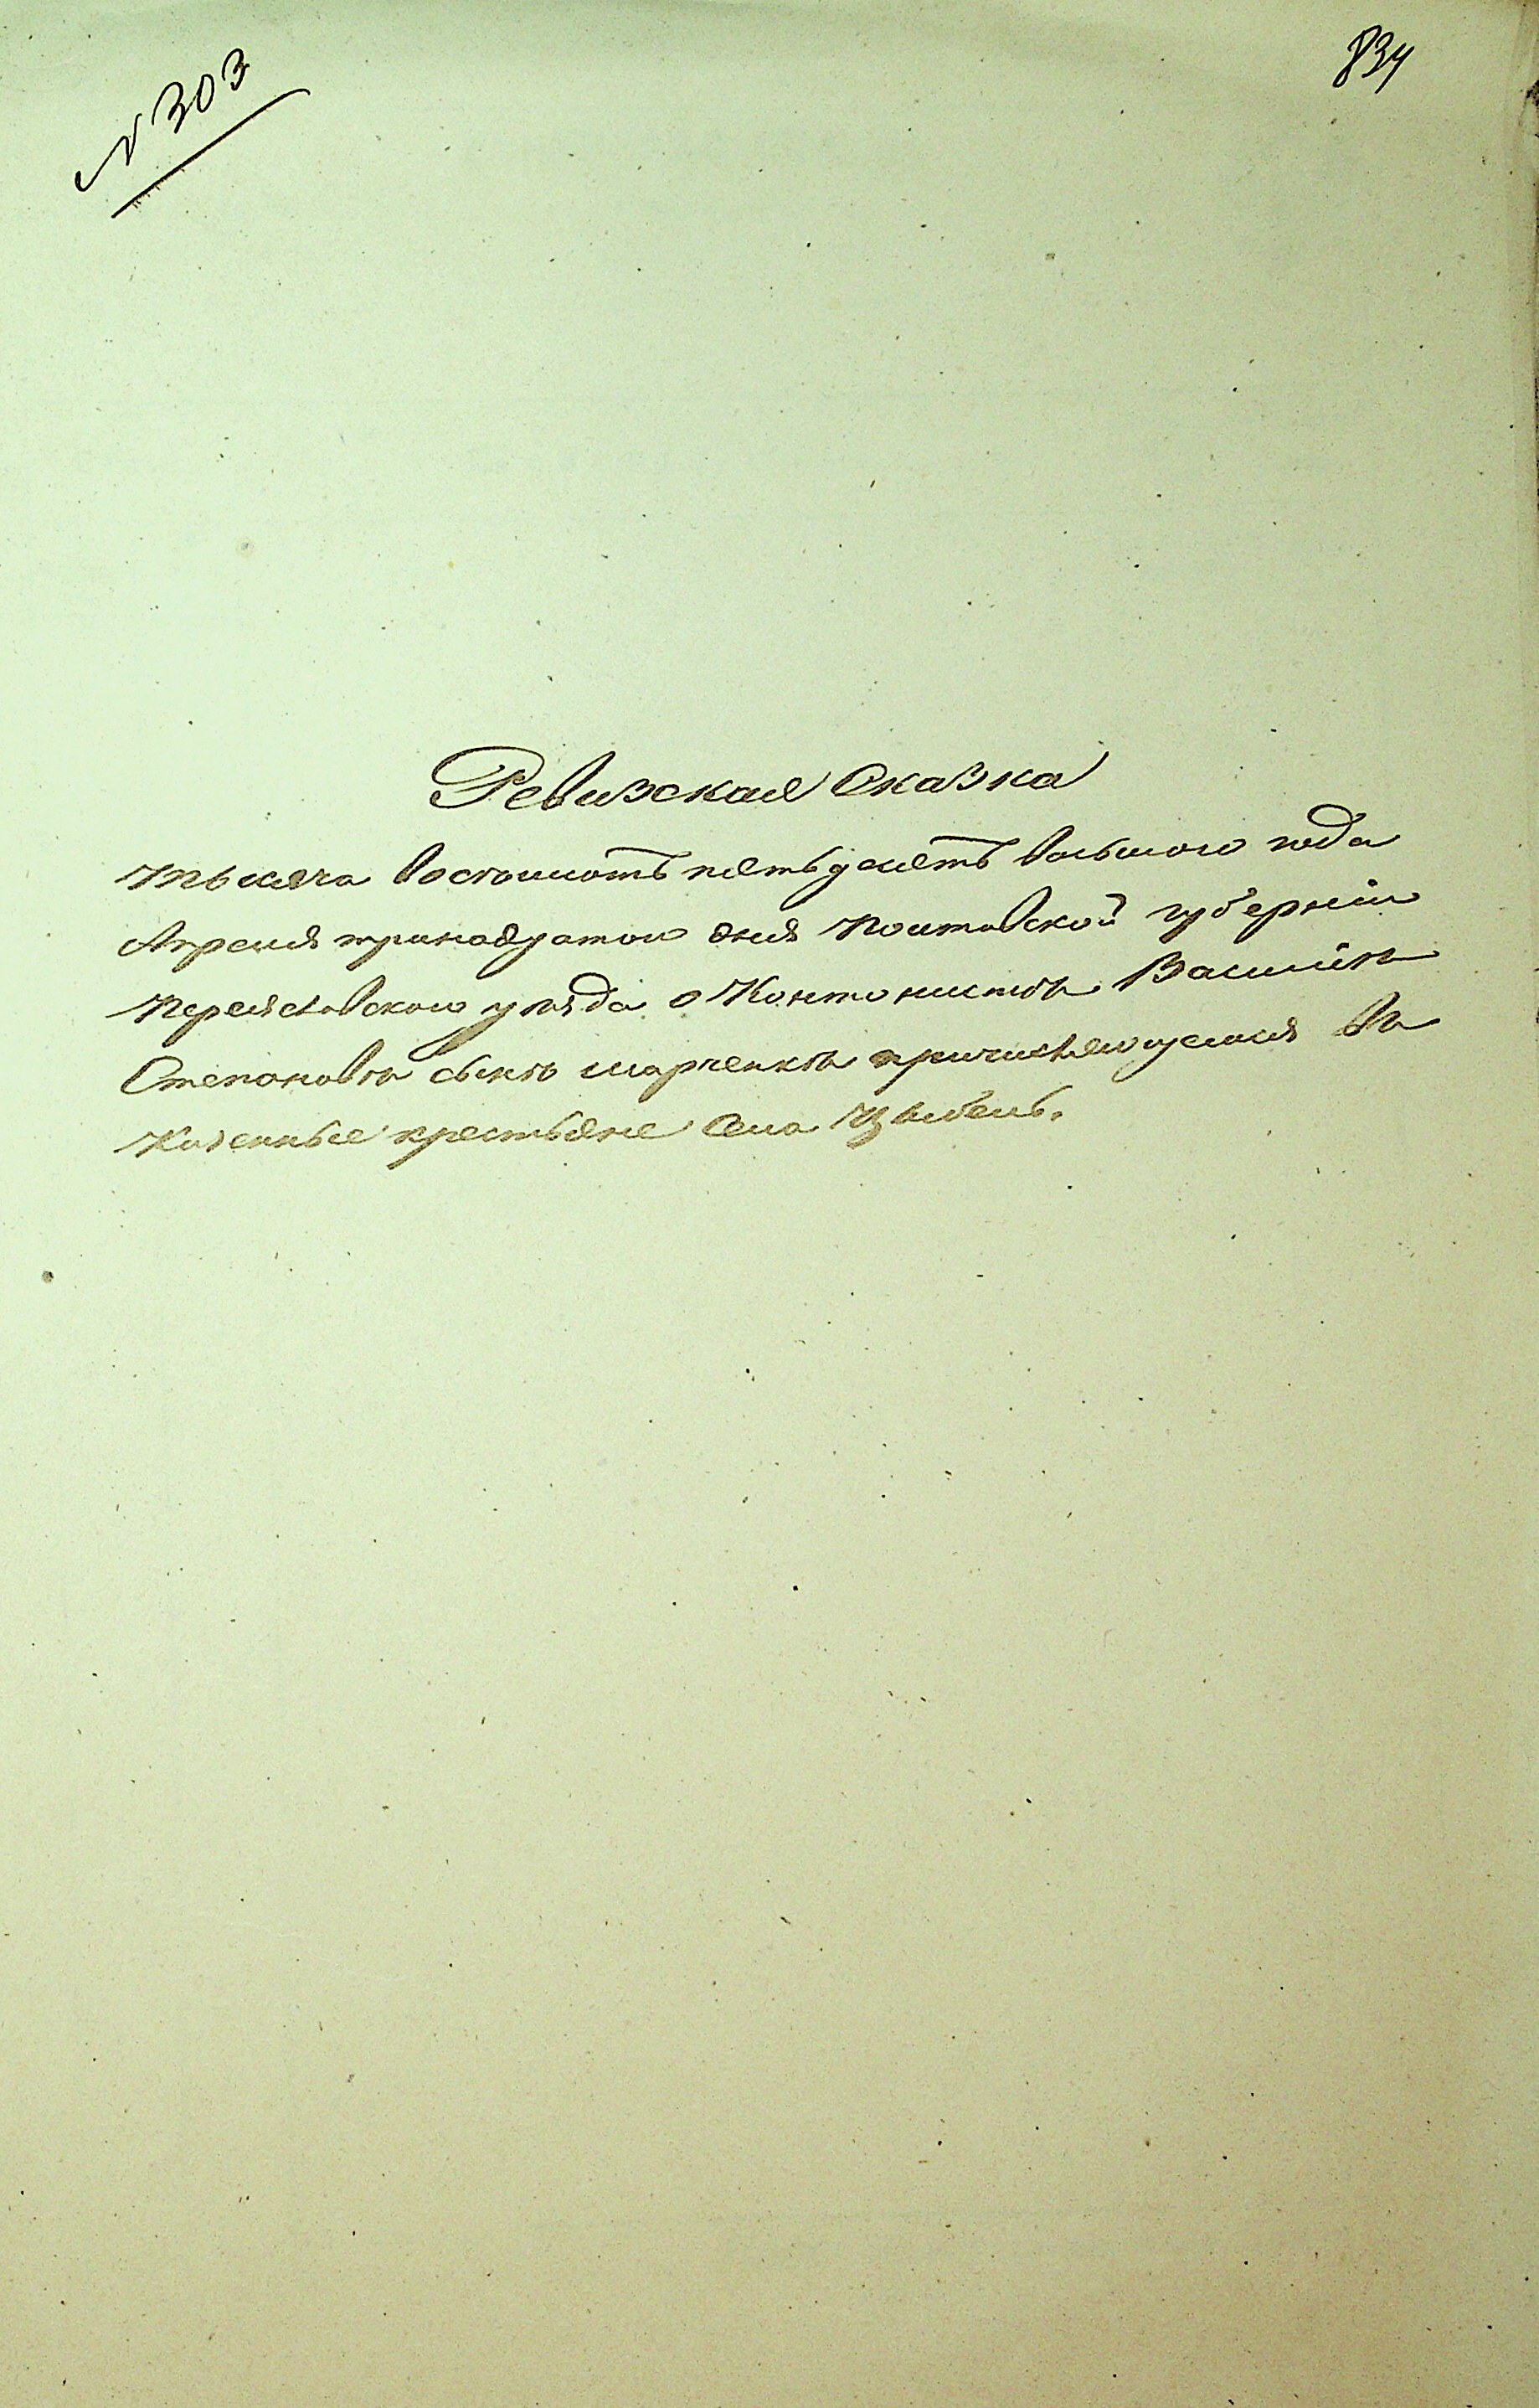 № 303
834
Ревизская Сказка
Тысяча восемьсотъ пятьдесятъ восьмого года
Апреля тринадцатого дня Полтавской губерніи
Переяславского уѣзда о Кантонистѣ Василіѣ
Степановѣ сынѣ Марченкѣ причисляющемся въ
Казенные крестьяне Села Цыбель.